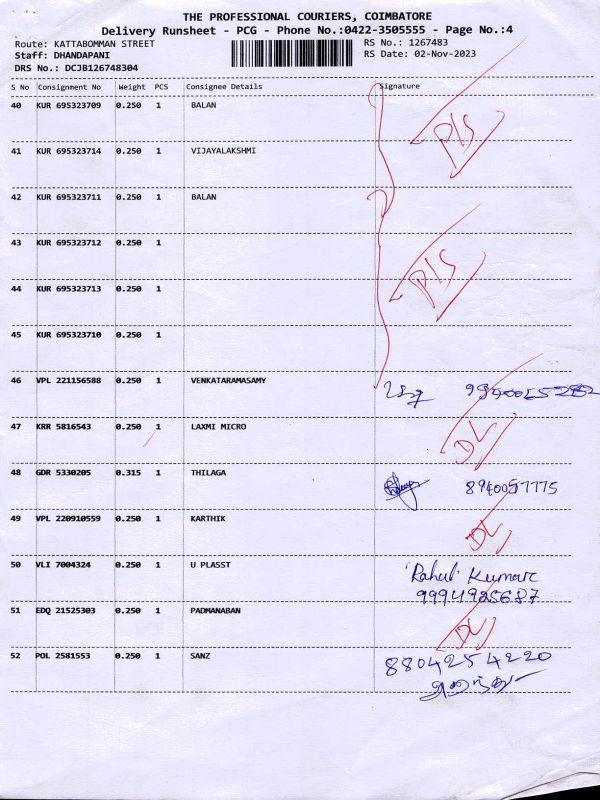 THE PROFESSIONAL COURIERS, COIMBATORE
Delivery Runsheet - PCG - Phone No.:0422-3505555 - Page No.:4
Route: KATTABOMMAN STREET RS No.: 1267483
Staff: DHANDAPANI RS Date: 02-Nov-2023
DRS No.: DCJB126748304
S No Consignment No Weight PCS Consignee Details Signature
40 KUR 695323709 0.250 1 BALAN
P/S
41 KUR 695323714 0.250 1 VIJAYALAKSHMI
42 KUR 695323711 0.250 1 BALAN
43 KUR 695323712 0.250 1
P/S
44 KUR 695323713 0.250 1
45 KUR 695323710 0.250 1
46 VPL 221156588 0.250 1 VENKATARAMASAMY
47 KRR 5816543 0.250 1 LAXMI MICRO DL
48 GDR 5330205 0.315 1 THILAGA 8940057775
49 VPL 220910559 0.250 1 KARTHIK DL
50 VLI 7004324 0.250 1 U PLASST Rahul Kumar
9994925687
51 EDQ 21525303 0.250 1 PADMANABAN DL
52 POL 2581553 0.250 1 SANZ 8804254220